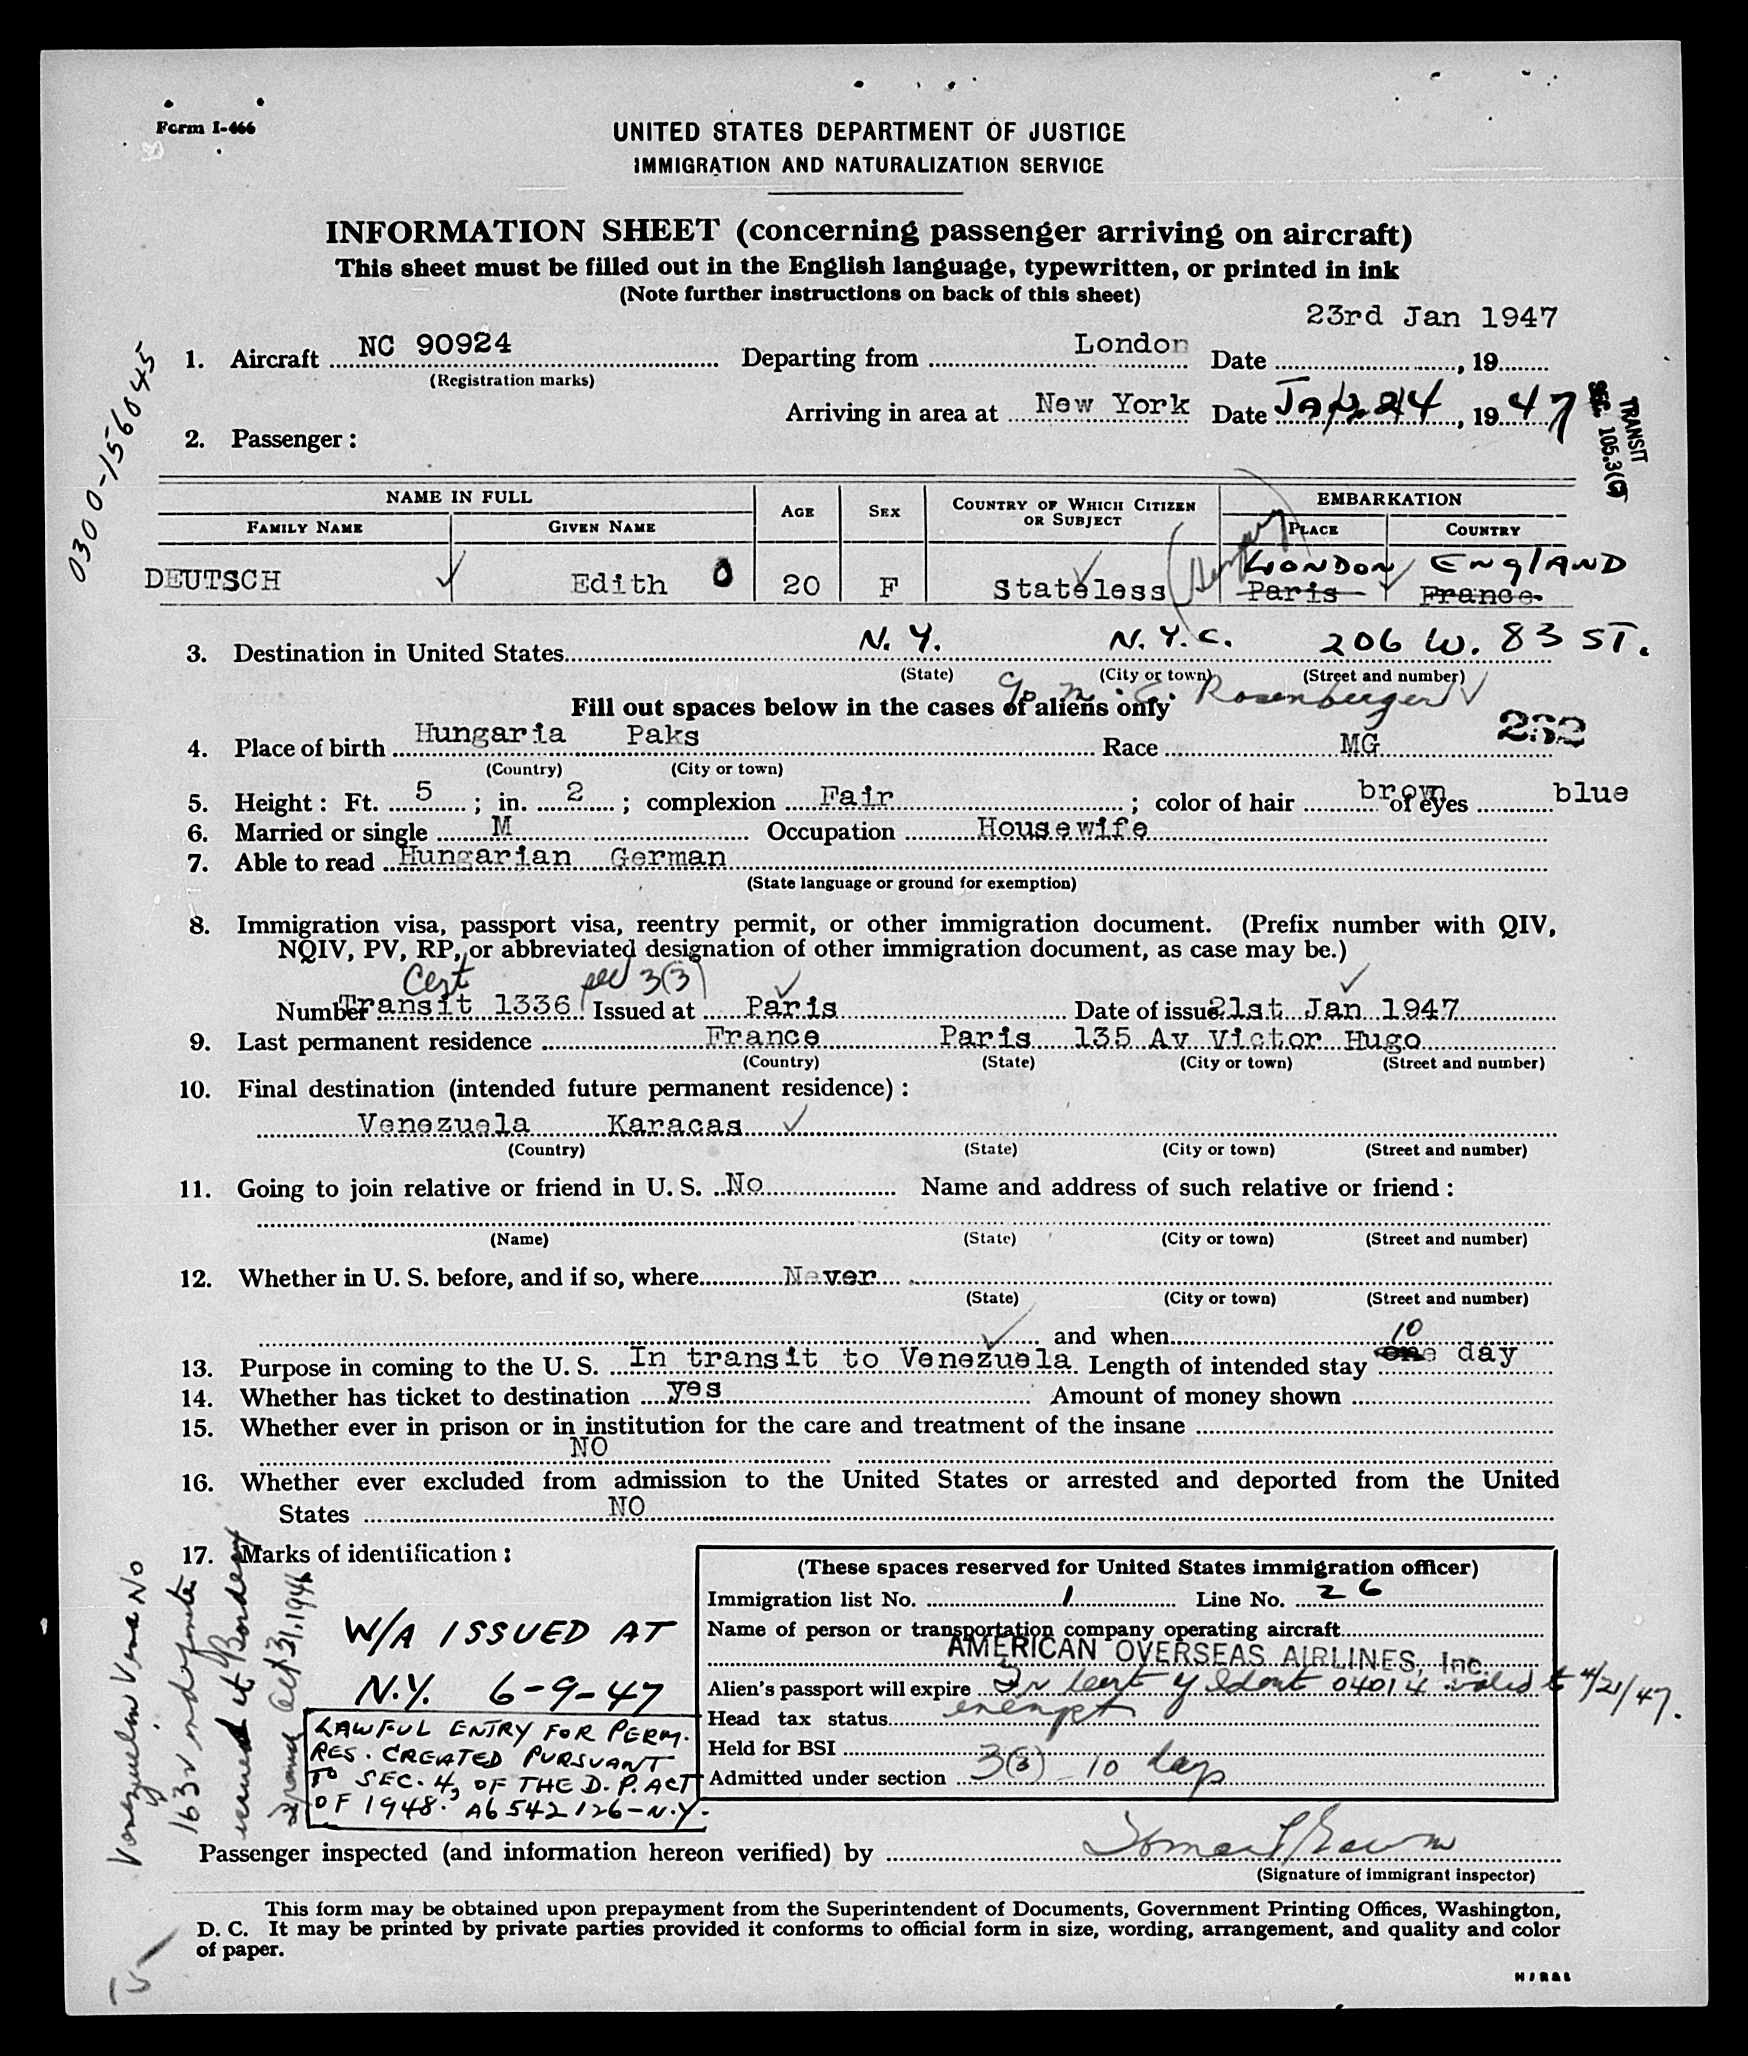 Form I-466
UNITED STATES DEPARTMENT OF JUSTICE
IMMIGRATION AND NATURALIZATION SERVICE
INFORMATION SHEET (concerning passenger arriving on aircraft)
This sheet must be filled out in the English language, typewritten, or printed in ink
(Note further instructions on back of this sheet)
23rd Jan 1947
1. Aircraft NC 90924 Departing from London Date , 19
(Registration marks)
Arriving in area at New York Date Jan. 24, 1947
TRANSIT
SEC. 105.3(G)
0300-156045
2. Passenger:
NAME IN FULL AGE SEX COUNTRY OF WHICH CITIZEN OR SUBJECT EMBARKATION
FAMILY NAME GIVEN NAME PLACE COUNTRY
LONDON ENGLAND
DEUTSCH Edith 20 F Stateless (Hungary) Paris France
3. Destination in United States N. Y. N. Y. C. 206 W. 83 ST.
(State) (City or town) (Street and number)
Rosenberger
Fill out spaces below in the cases of aliens only
4. Place of birth Hungaria Paks Race MG
(Country) (City or town)
5. Height: Ft. 5; in. 2; complexion Fair; color of hair brown of eyes blue
6. Married or single M Occupation Housewife
7. Able to read Hungarian German
(State language or ground for exemption)
8. Immigration visa, passport visa, reentry permit, or other immigration document. (Prefix number with QIV,
NQIV, PV, RP, or abbreviated designation of other immigration document, as case may be.)
Cert sec 3(3)
Number Transit 1336 Issued at Paris Date of issue 21st Jan 1947
9. Last permanent residence France Paris 135 Av Victor Hugo
(Country) (State) (City or town) (Street and number)
10. Final destination (intended future permanent residence):
Venezuela Karacas
(Country) (State) (City or town) (Street and number)
11. Going to join relative or friend in U. S. No Name and address of such relative or friend:
(Name) (State) (City or town) (Street and number)
12. Whether in U. S. before, and if so, where Never
(State) (City or town) (Street and number)
and when
10
13. Purpose in coming to the U. S. In transit to Venezuela Length of intended stay one day
14. Whether has ticket to destination yes Amount of money shown
15. Whether ever in prison or in institution for the care and treatment of the insane
NO
16. Whether ever excluded from admission to the United States or arrested and deported from the United
States NO
17. Marks of identification:
W/A ISSUED AT
N.Y. 6-9-47
LAWFUL ENTRY FOR PERM.
RES. CREATED PURSUANT
TO SEC. 4, OF THE D. P. ACT
OF 1948. A6 542 126-N.Y.
Venezuelan Visa No
163v indefinite
issued at Bordeaux
France Oct 31, 1946
(These spaces reserved for United States immigration officer)
Immigration list No. 1 Line No. 26
Name of person or transportation company operating aircraft
AMERICAN OVERSEAS AIRLINES, Inc.
Alien's passport will expire cert of Ident 04014 valid to 4/21/47.
Head tax status exempt
Held for BSI
Admitted under section 3(3) 10 days
Passenger inspected (and information hereon verified) by
(Signature of immigrant inspector)
This form may be obtained upon prepayment from the Superintendent of Documents, Government Printing Offices, Washington,
D. C. It may be printed by private parties provided it conforms to official form in size, wording, arrangement, and quality and color
of paper.